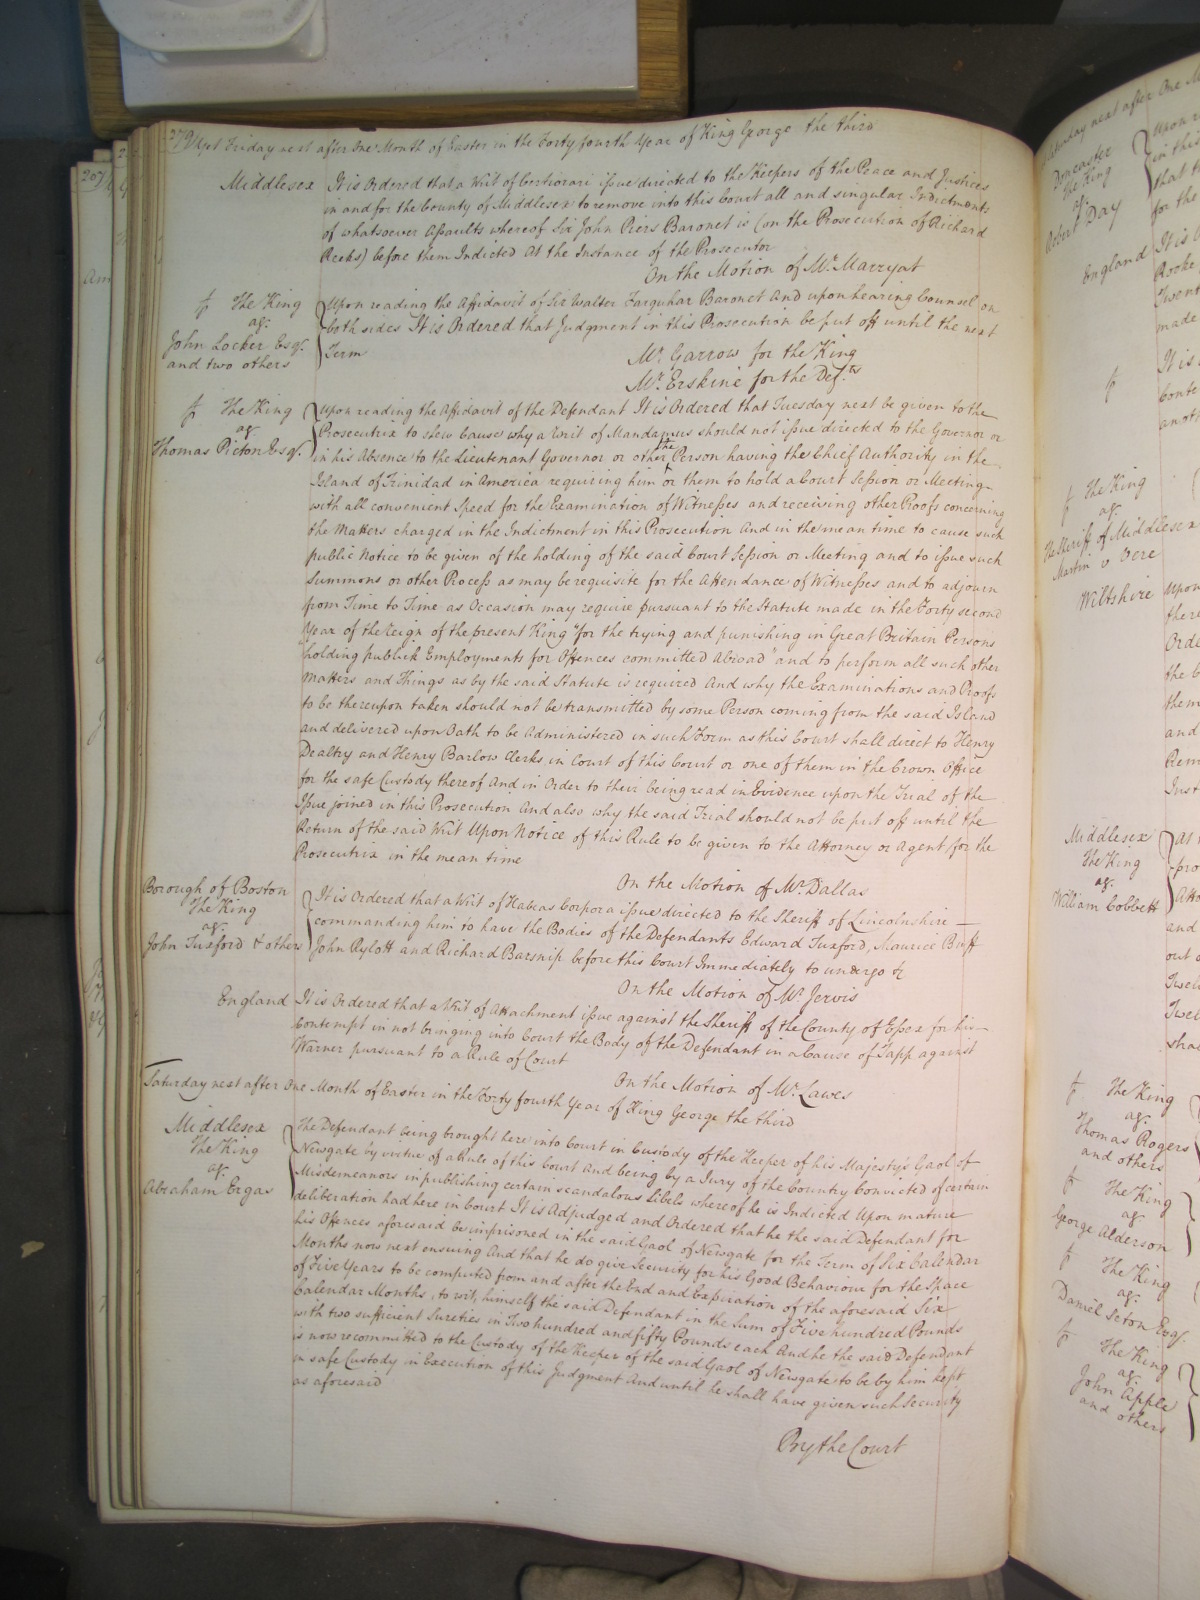 279
Yet Friday next after One Month of Easter in the Forty fourth Year of King George the third
Middlesex
It is Ordered that a Writ of Certiorari issue directed to the Keepers of the Peace and Justices
in and for the County of Middlesex to remove into this Court all and singular Indictments
of whatsoever Assaults whereof Sir John Piers Baronet is (on the Prosecution of Richard
Reeks) before them Indicted At the Instance of the Prosecutor
On the Motion of Mr. Marryat
The King
ag.
John Locker Esqr.
and two others
Upon reading the Affidavit of Sir Walter Farquhar Baronet And upon hearing Counsel on
both sides It is Ordered that Judgment in this Prosecution be put off until the next
Term
Mr. Garrow for the King
Mr. Erskine for the Defts.
The King
ag.
Thomas Picton Esqr.
Upon reading the Affidavit of the Defendant It is Ordered that Tuesday next be given to the
Prosecutrix to shew Cause why a Writ of Mandamus should not issue directed to the Governor or
in his Absence to the Lieutenant Governor or other the Person having the Chief Authority in the
Island of Trinidad in America requiring him or them to hold a Court Session or Meeting
with all convenient Speed for the Examination of Witnesses and receiving other Proofs concerning
the Matters charged in the Indictment in this Prosecution And in the mean time to cause such
public Notice to be given of the holding of the said Court Session or Meeting and to issue such
Summons or other Process as may be requisite for the Attendance of Witnesses and to adjourn
from Time to Time as Occasion may require pursuant to the Statute made in the Forty second
Year of the Reign of the present King "for the trying and punishing in Great Britain Persons
holding publick Employments for Offences committed Abroad" and to perform all such other
Matters and Things as by the said Statute is required And why the Examinations and Proofs
to be thereupon taken should not be transmitted by some Person coming from the said Island
and delivered upon Oath to be Administered in such Form as this Court shall direct to Henry
Dealtry and Henry Barlow Clerks in Court of this Court or one of them in the Crown Office
for the safe Custody thereof And in Order to their being read in Evidence upon the Trial of the
Issue joined in this Prosecution And also why the said Trial should not be put off until the
Return of the said Writ Upon Notice of this Rule to be given to the Attorney or Agent for the
Prosecutrix in the mean time
On the Motion of Mr. Dallas
Borough of Boston
The King
ag.
John Tuxford & others
It is Ordered that a Writ of Habeas Corpora issue directed to the Sheriff of Lincolnshire
commanding him to have the Bodies of the Defendants Edward Tuxford, Maurice Buff
John Rylott and Richard Barsnip before this Court Immediately to undergo &c
On the Motion of Mr. Jervis
England
It is Ordered that a Writ of Attachment issue against the Sheriff of the County of Essex for his
Contempt in not bringing into Court the Body of the Defendant in a Cause of Tapp against
Warner pursuant to a Rule of Court
On the Motion of Mr. Lawes
Saturday next after One Month of Easter in the Forty fourth Year of King George the third
Middlesex
The King
ag.
Abraham Ergas
The Defendant being brought here into Court in Custody of the Keeper of his Majesty's Gaol of
Newgate by virtue of a Rule of this Court And being by a Jury of the Country Convicted of certain
Misdemeanors in publishing certain scandalous Libels whereof he is Indicted Upon mature
deliberation had here in Court It is Adjudged and Ordered that he the said Defendant for
his Offences aforesaid be imprisoned in the said Gaol of Newgate for the Term of Six Calendar
Months now next ensuing And that he do give Security for his Good Behaviour for the Space
of Five Years to be computed from and after the End and Expiration of the aforesaid Six
Calendar Months, to wit, himself the said Defendant in the Sum of Five hundred Pounds
with two sufficient Sureties in Two hundred and fifty Pounds each And he the said Defendant
is now recommitted to the Custody of the Keeper of the said Gaol of Newgate to be by him kept
in safe Custody in Execution of this Judgment And until he shall have given such Security
as aforesaid
By the Court
207
Saturday next after One
Doncaster
The King
ag.
Robert Day
Upon
in this
that
for the
England
It is
Rooke
Twent
made
It is
Conte
anoth
The King
ag.
The Sheriff of Middlesex
Martin v Vere
Wiltshire
Upon
there
Orde
the
them
and
Rem
Just
Middlesex
The King
ag.
William Cobbett
At
pro
Atto
and
out o
Twel
Twel
sha
The King
ag.
Thomas Rogers
and others
The King
ag.
George Alderson
The King
ag.
Daniel Seton Esqr.
The King
ag.
John Apple
and others